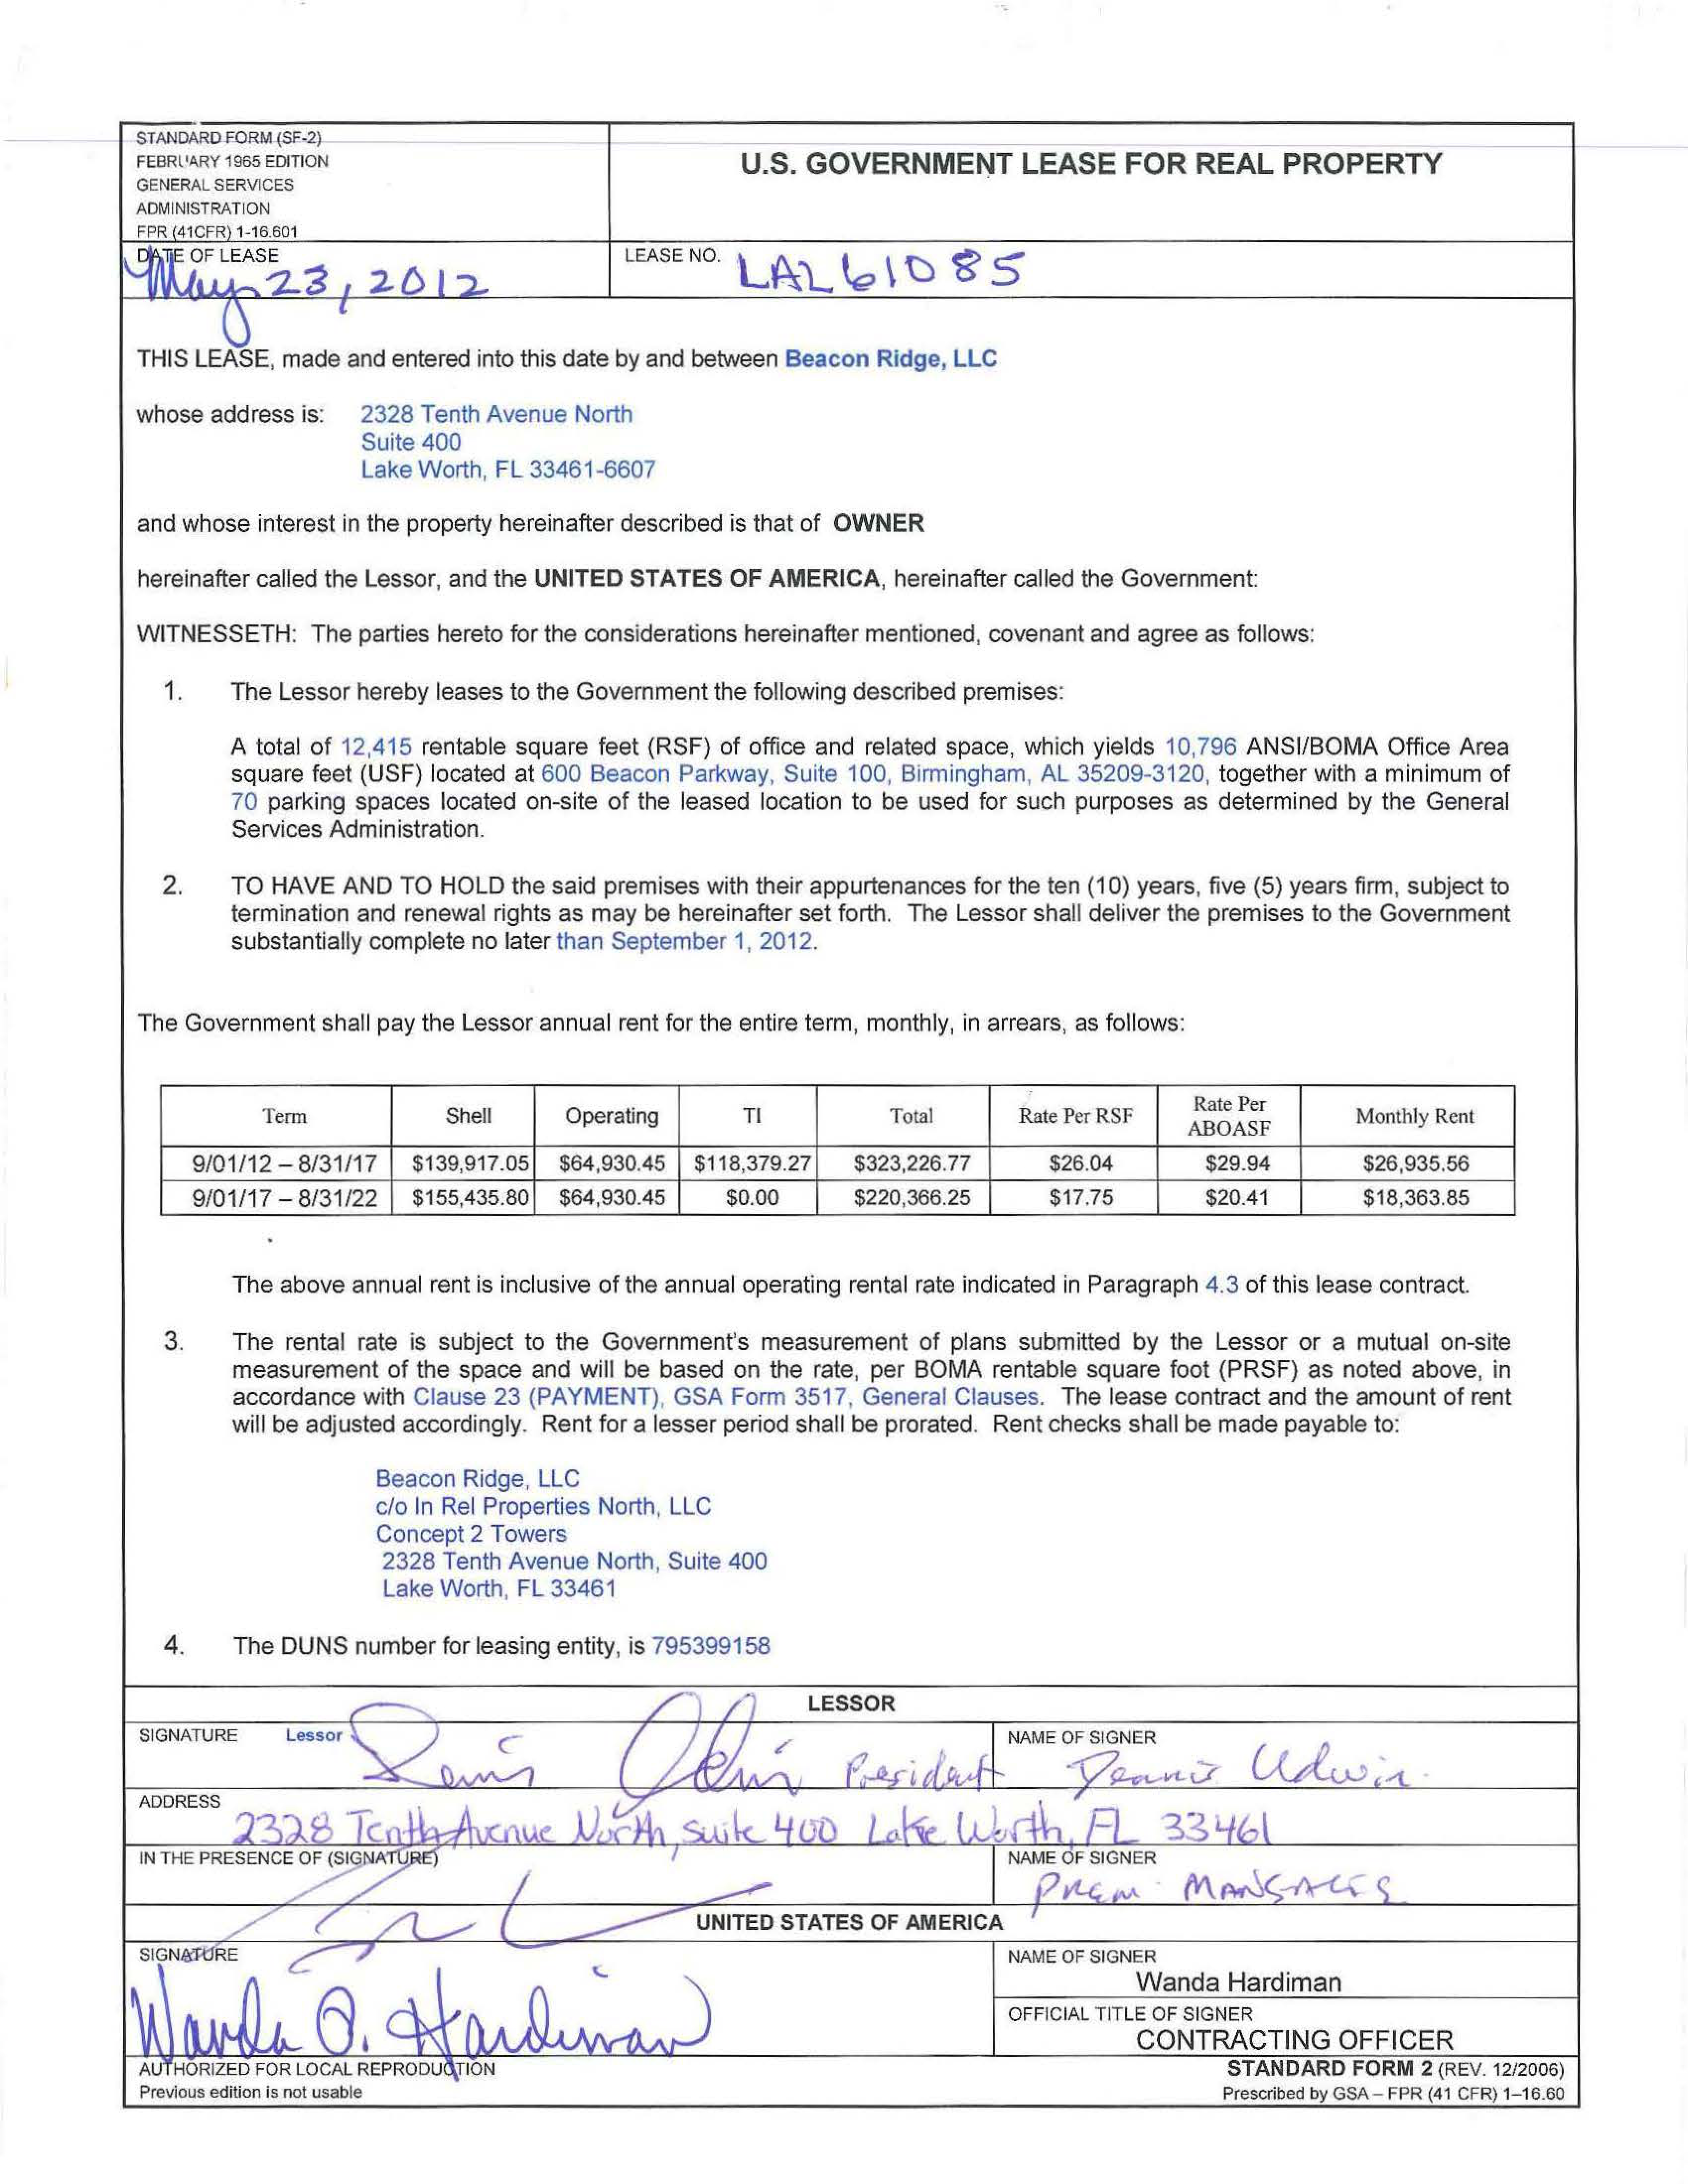 STANDARD FORM (SF-2)
FEBRUARY 1965 EDITION
GENERAL SERVICES
ADMINISTRATION
FPR (41CFR) 1-16.601
U.S. GOVERNMENT LEASE FOR REAL PROPERTY
DATE OF LEASE
May 23, 2012
LEASE NO. LAL61085
THIS LEASE, made and entered into this date by and between Beacon Ridge, LLC
whose address is: 2328 Tenth Avenue North
Suite 400
Lake Worth, FL 33461-6607
and whose interest in the property hereinafter described is that of OWNER
hereinafter called the Lessor, and the UNITED STATES OF AMERICA, hereinafter called the Government:
WITNESSETH: The parties hereto for the considerations hereinafter mentioned, covenant and agree as follows:
1. The Lessor hereby leases to the Government the following described premises:
A total of 12,415 rentable square feet (RSF) of office and related space, which yields 10,796 ANSI/BOMA Office Area
square feet (USF) located at 600 Beacon Parkway, Suite 100, Birmingham, AL 35209-3120, together with a minimum of
70 parking spaces located on-site of the leased location to be used for such purposes as determined by the General
Services Administration.
2. TO HAVE AND TO HOLD the said premises with their appurtenances for the ten (10) years, five (5) years firm, subject to
termination and renewal rights as may be hereinafter set forth. The Lessor shall deliver the premises to the Government
substantially complete no later than September 1, 2012.
The Government shall pay the Lessor annual rent for the entire term, monthly, in arrears, as follows:
Term Shell Operating TI Total Rate Per RSF Rate Per ABOASF Monthly Rent
9/01/12 – 8/31/17 $139,917.05 $64,930.45 $118,379.27 $323,226.77 $26.04 $29.94 $26,935.56
9/01/17 – 8/31/22 $155,435.80 $64,930.45 $0.00 $220,366.25 $17.75 $20.41 $18,363.85
The above annual rent is inclusive of the annual operating rental rate indicated in Paragraph 4.3 of this lease contract.
3. The rental rate is subject to the Government's measurement of plans submitted by the Lessor or a mutual on-site
measurement of the space and will be based on the rate, per BOMA rentable square foot (PRSF) as noted above, in
accordance with Clause 23 (PAYMENT), GSA Form 3517, General Clauses. The lease contract and the amount of rent
will be adjusted accordingly. Rent for a lesser period shall be prorated. Rent checks shall be made payable to:
Beacon Ridge, LLC
c/o In Rel Properties North, LLC
Concept 2 Towers
2328 Tenth Avenue North, Suite 400
Lake Worth, FL 33461
4. The DUNS number for leasing entity, is 795399158
LESSOR
SIGNATURE Lessor President
NAME OF SIGNER
Dennis Udwin
ADDRESS
2328 Tenth Avenue North, Suite 400 Lake Worth, FL 33461
IN THE PRESENCE OF (SIGNATURE)
NAME OF SIGNER
Prem
UNITED STATES OF AMERICA
SIGNATURE
Wanda O. Hardiman
NAME OF SIGNER
Wanda Hardiman
OFFICIAL TITLE OF SIGNER
CONTRACTING OFFICER
AUTHORIZED FOR LOCAL REPRODUCTION
Previous edition is not usable
STANDARD FORM 2 (REV. 12/2006)
Prescribed by GSA – FPR (41 CFR) 1–16.60